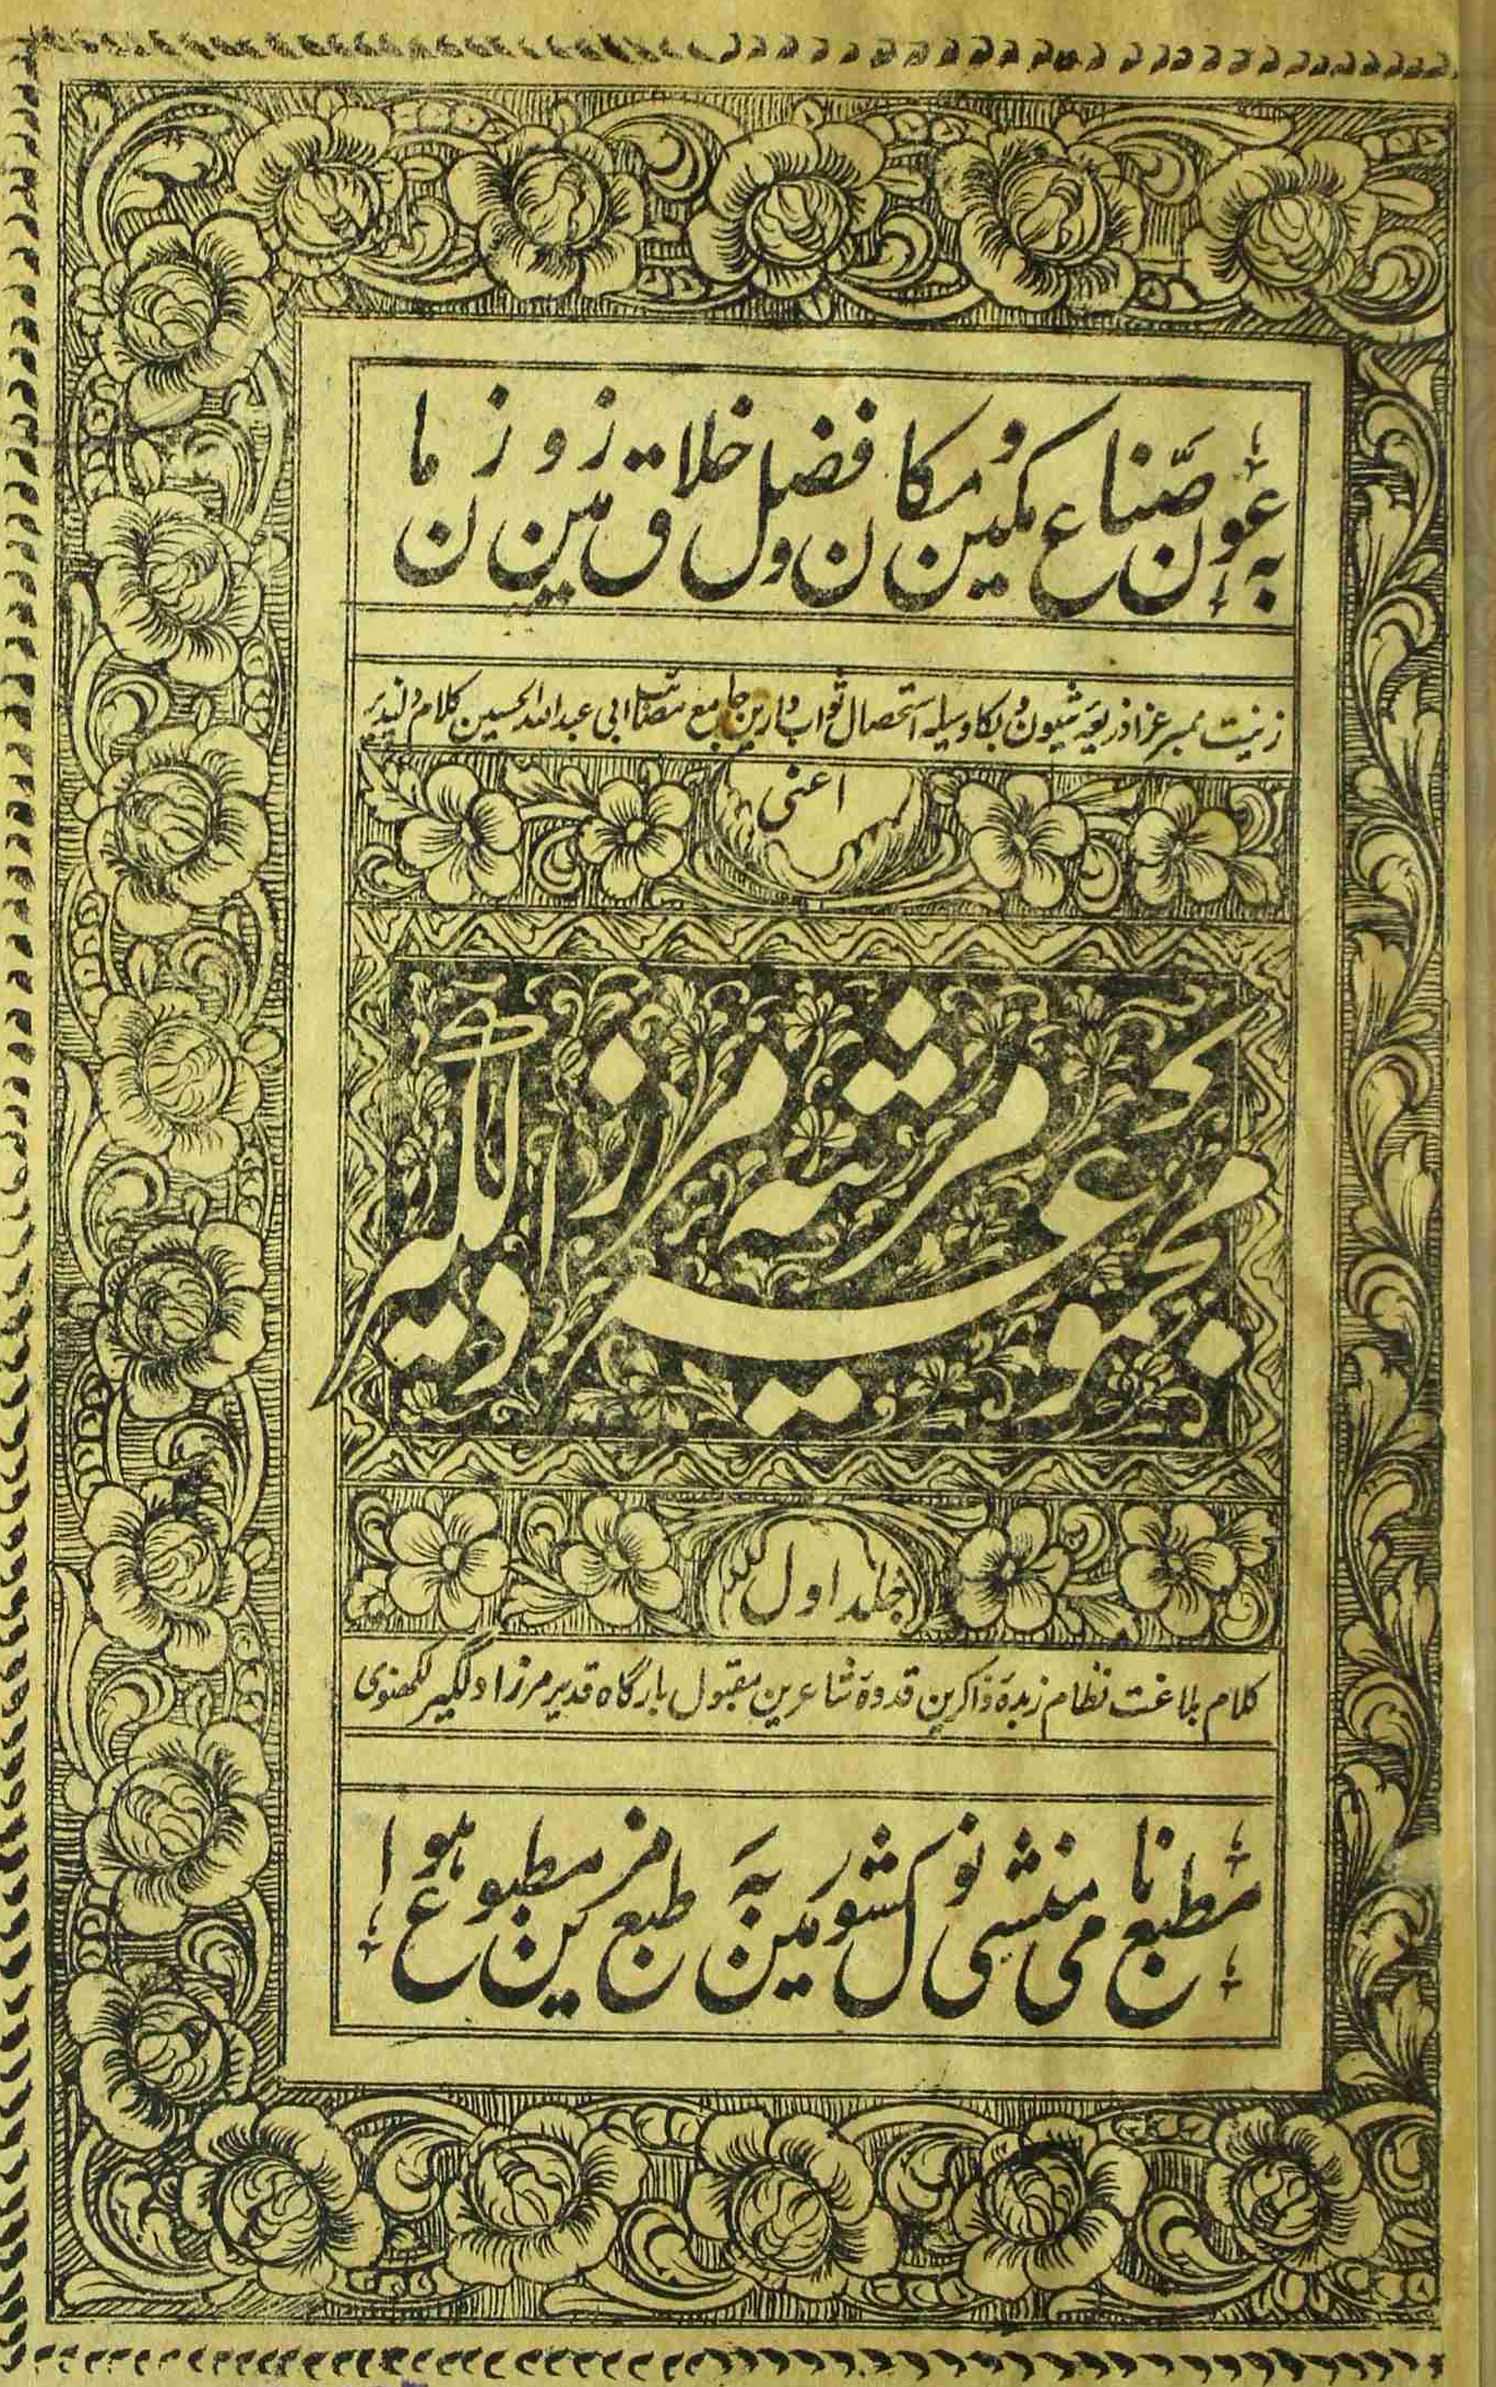 بہ عون صنّاع مکین و مکان و فضل خلاق زمین و زمان
زینت ممبر عزا ذریعۂ شیون و بکا وسیلہ استحصال ثواب دارین جامع مصائب ابی عبداللہ الحسین کلام دلپذیر
اعنی
مجموعہ مرثیہ مرزا دلگیر
جلد اول
کلام بلاغت نظام زبدۂ ذاکرین قدوۂ شاعرین مقبول بارگاہ قدیر مرزا دلگیر لکھنوی
مطبع نامی منشی نولکشور مین بہ طبع مزین مطبوع ہوا